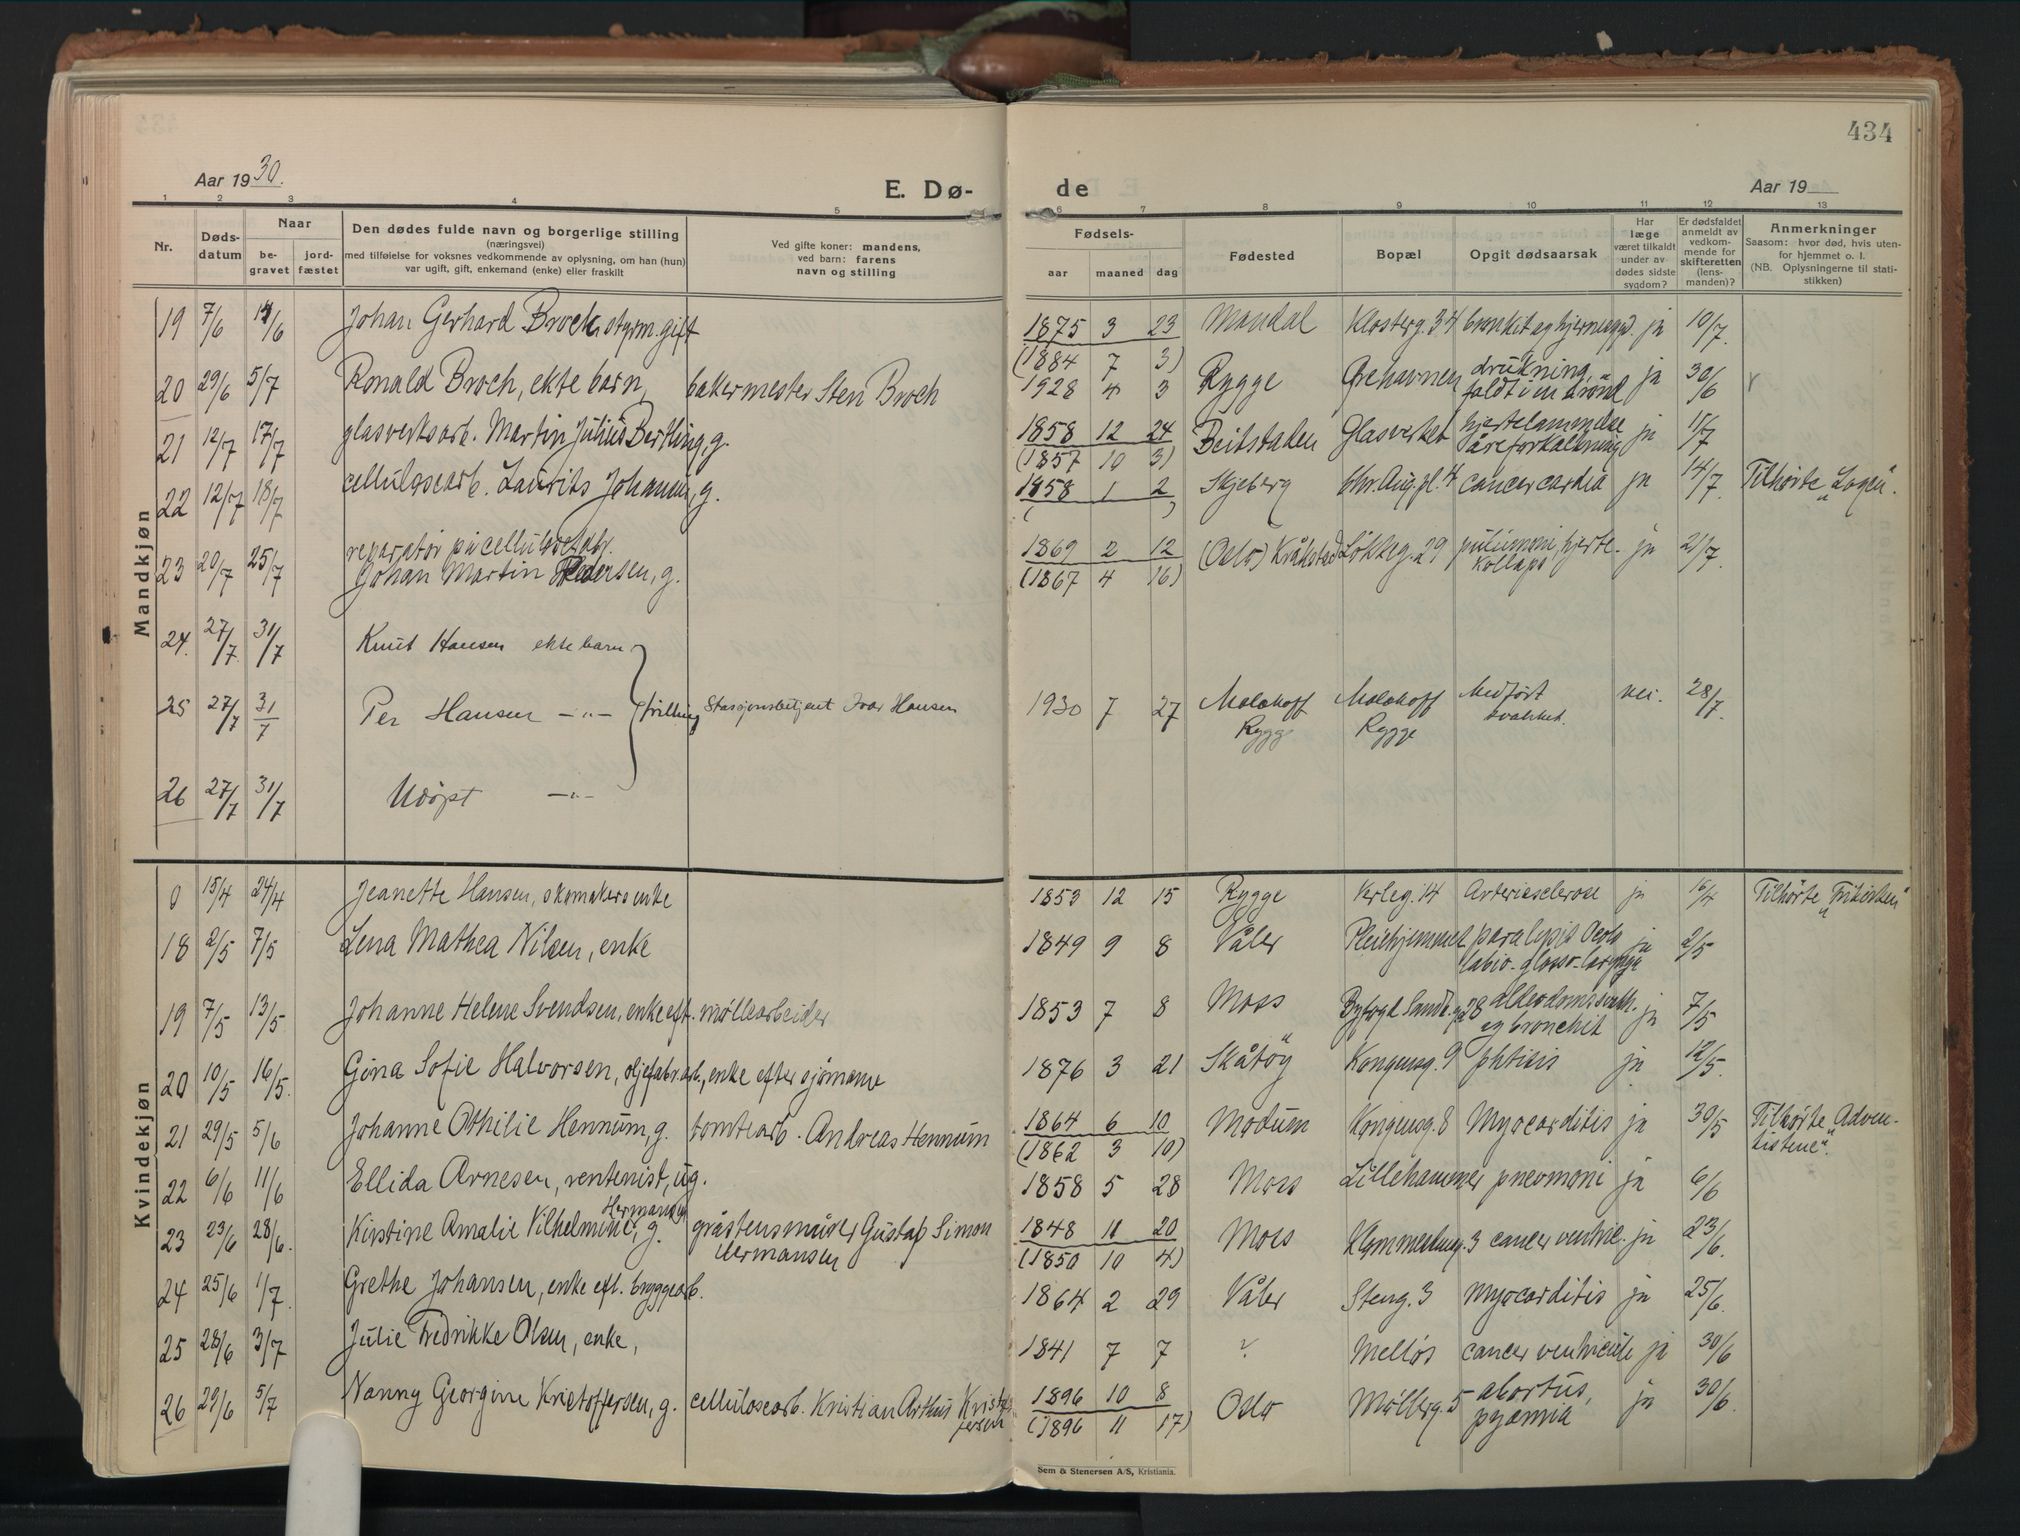 434
Aar 1930.
E. Dø-
de
Aar 19
1 2 3 4 5 6 7 8 9 10 11 12 13
Nr.
Døds-
datum
Naar
be-
gravet
jord-
fæstet
Den dødes fulde navn og borgerlige stilling
(næringsvei)
med tilføielse for voksnes vedkommende av oplysning, om han (hun)
var ugift, gift, enkemand (enke) eller fraskilt
Ved gifte koner: mandens,
ved barn: farens
navn og stilling
Fødsels-
aar maaned dag
Fødested
Bopæl
Opgit dødsaarsak
Har
læge
været tilkaldt
under av
dødes sidste
sygdom?
Er dødsfaldet
anmeldt av
vedkom-
mende for
skifteretten
(lens-
manden)?
Anmerkninger
Saasom: hvor død, hvis uten-
for hjemmet o. l.
(NB. Oplysningerne til stati-
stikken)
Mandkjøn
19 7/6 /6 Johan Gerhard Broch, styrm. gift 1875 3 23 Mandal Klosterg. 34 bronkit og ja 10/7.
(1884 7 3)
20 29/6 5/7 Ronald Broch, ekte barn, bakermester Sten Broch 1928 4 3 Rygge Orehavnen drukning, faldt i en brønd ja 30/6
21 12/7 17/7 glasverksarb. Martin Julius Bertling, g. 1858 12 24 Beitstaden Glasverket hjertelammelse åreforkalkning ja 15/7
(1857 10 3)
22 12/7 18/7 cellulosearb. Laurits Johansen, g. 1858 1 2 Skjeberg Chr. Aug. pl. 4 cancer cardia ja 14/7. Tilhørte "Logen".
( )
23 20/7 25/7 reparatør på cellulosefabr.
Johan Martin Pedersen, g. 1869 2 12 (Oslo) Kråkstad Løkkeg. 29 hjerte-kollaps ja 21/7.
(1867 4 16)
24. 27/7. 31/7 Knut Hansen ekte barn
25 27/7 31/7 Per Hansen -"- trilling Stasjonsbetjent Ivar Hansen 1930 7 27 Malakoff Rygge Malakoff Rygge Medført svakhet. nei. 28/7.
26 27/7 31/7 Udøpt -"-
Kvindekjøn
0 15/4 24/4 Jeanette Hansen, skomakers enke 1853 12 15 Rygge Kirkeg. 14 Arteriesclerose ja 16/4 Tilhørte "Frikirken"
18 2/5 7/5 Lena Mathea Nilsen, enke 1849 9 8 Våler Pleiehjemmet paralysis labio-glosso-larynge ja 2/5
19 7/5 13/5 Johanne Helene Svendsen, enke eft. møllearbeider 1853 7 8 Moss Byfogd Sandb. g. 28 alderdomssvakh. og bronchit ja 7/5
20 10/5 16/5. Gina Sofie Halvorsen, oljefabr.arb., enke efter sjømann 1876 3 21 Skåtøy Kongensg. 9 phtisis ja 12/5.
21 29/5 5/6 Johanne Othilie Hennum, g. tomtearb. Andreas Hennum 1864 6 10 Moduen Kongensg. 8 Myocarditis ja 30/5 Tilhørte "Adven-
tistene".
(1862 3 10)
22 6/6 11/6 Ellida Arnesen, rentenist, ug. 1858 5 28 Moss Lillehammer pneomoni ja 6/6
23 23/6 28/6. Kirstine Amalie Vilhelmine Hermansen, g. gråstensmurer Gustap Simon Hermansen 1848 11 20 Moss 3 cancer ventric. ja 23/6.
(1850 10 4)
24 25/6 1/7. Grethe Johansen, enke eft. bryggearb. 1864 2 29 Våler Steng. 3 Myocarditis ja 25/6.
25 28/6 3/7 Julie Fredrikke Olsen, enke, 1841 7 7 ? Melløs cancer ventriculi ja 30/6
26 29/6 5/7 Nanny Georgine Kristoffersen, g. cellulosearb. Kristian Arthur Kristoffersen 1896 10 8 Oslo Møllerg. 5 abortus, pyæmia ja 30/6.
(1896 11 17)
Sem & Stenersen A/S, Kristiania.